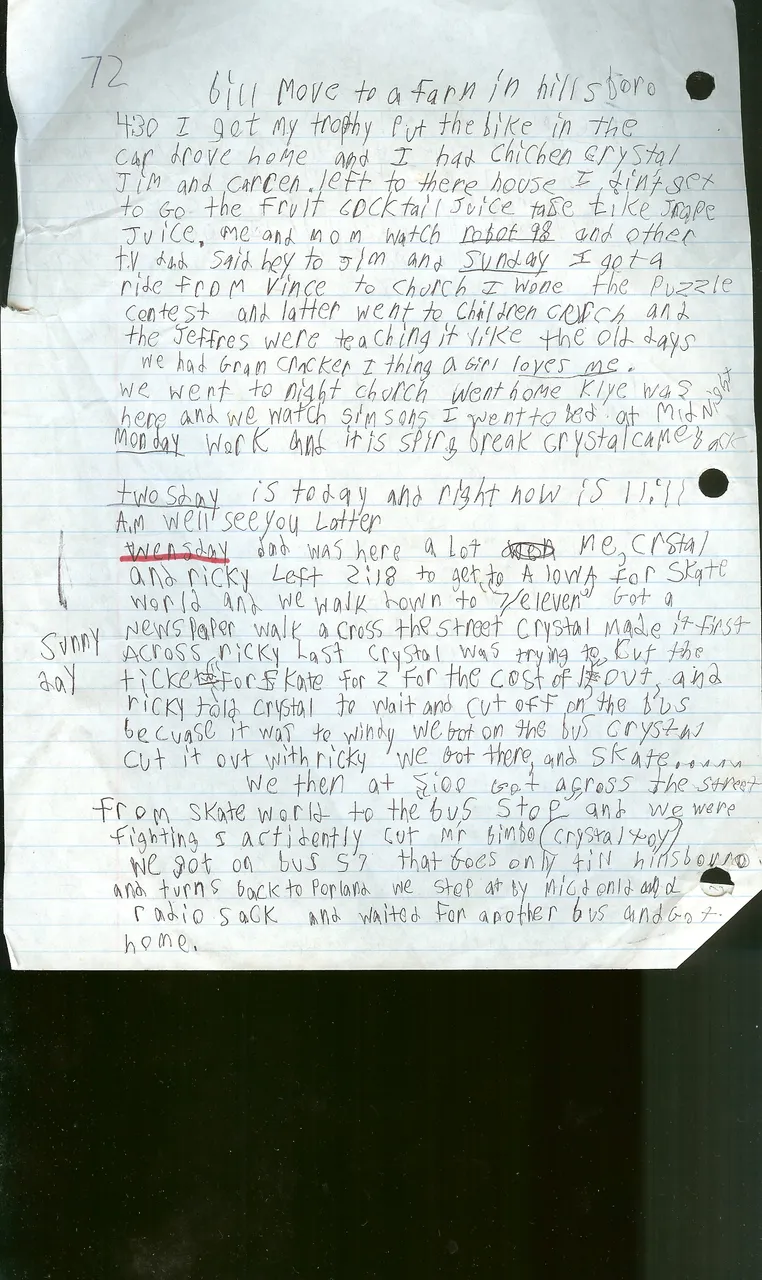 72
bill Move to a Farn in hillsboro
4:30 I got my trophy Put the bike in the
car drove home and I had Chichen Crystal
Jim and Carren left to there house I dint get
to Go the Fruit Cocktail Juice taste Like Jrape
Juice, me and mom watch robot 98 and other
t.v dad said hey to Jim and Sunday I got a
ride From Vince to church I wone the Puzzle
contest and latter went to Children and
the Jeffres were teaching it like the old days
we had Gram Cracker I thing a Girl loves me.
we went to night church went home Klye was
here and we watch simsons I went to bed at MidNight
Monday work and it is spirg break crystal came back
twosday is today and right now is 11:11
A.M well see you Latter
twensday dad was here a Lot me, Crstal
and ricky Left 2:18 to get to A lowA for Skate
world and we walk down to "7/eleven" Got a
Newspaper walk a cross the street Crystal made it First
Across ricky Last Crystal was trying to cut the
Sunny
day
ticket For Skate For 2 for the cost of 1 out, and
ricky told crystal to wait and cut off on the bus
becuase it was to windy we bot on the bus
cut it out with ricky we Got there, and Skate......
we then at 5:00 Got across the street
From skate world to the bus Stop and we were
Fighting I actidently cut Mr bimbo (crystal toy)
we got on bus 57 that Goes only till
and turns back to Porland we stop at by and
radio sack and waited For another bus and Got
home.